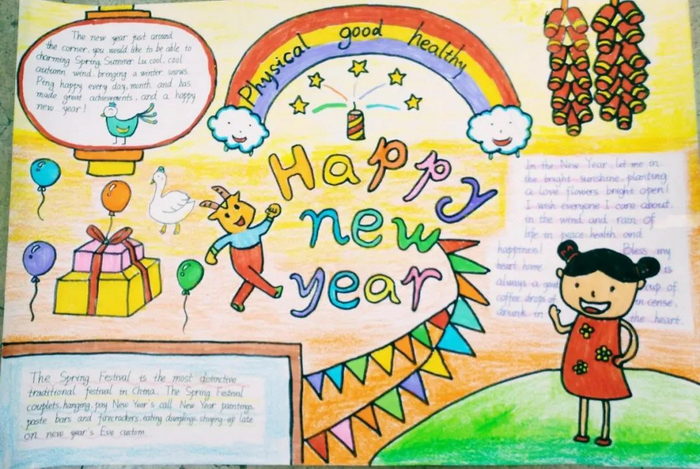 The new year just around
the corner, you would like to be able to
charming Spring, Summer Lu cool, cool
autumn wind, bringing a winter works.
Peng happy every day, month and has
made great achievements, and a happy
new year!
Physical good healthy
Happy
new
year
In the New Year, let me in
the bright sunshine, planting
a love flowers bright open!
I wish everyone I care about
in the wind and rain of
life in peace health and
happiness! Bless my
heart home is
always a cup of
coffee, drops of incense,
drunk in the heart.
The Spring Festival is the most distinctive
traditional festival in China. The Spring Festival
couplets, hanging, pay New Year's call New Year paintings,
paste bars and firecrackers, eating dumplings, staying up late
on new year's Eve custom